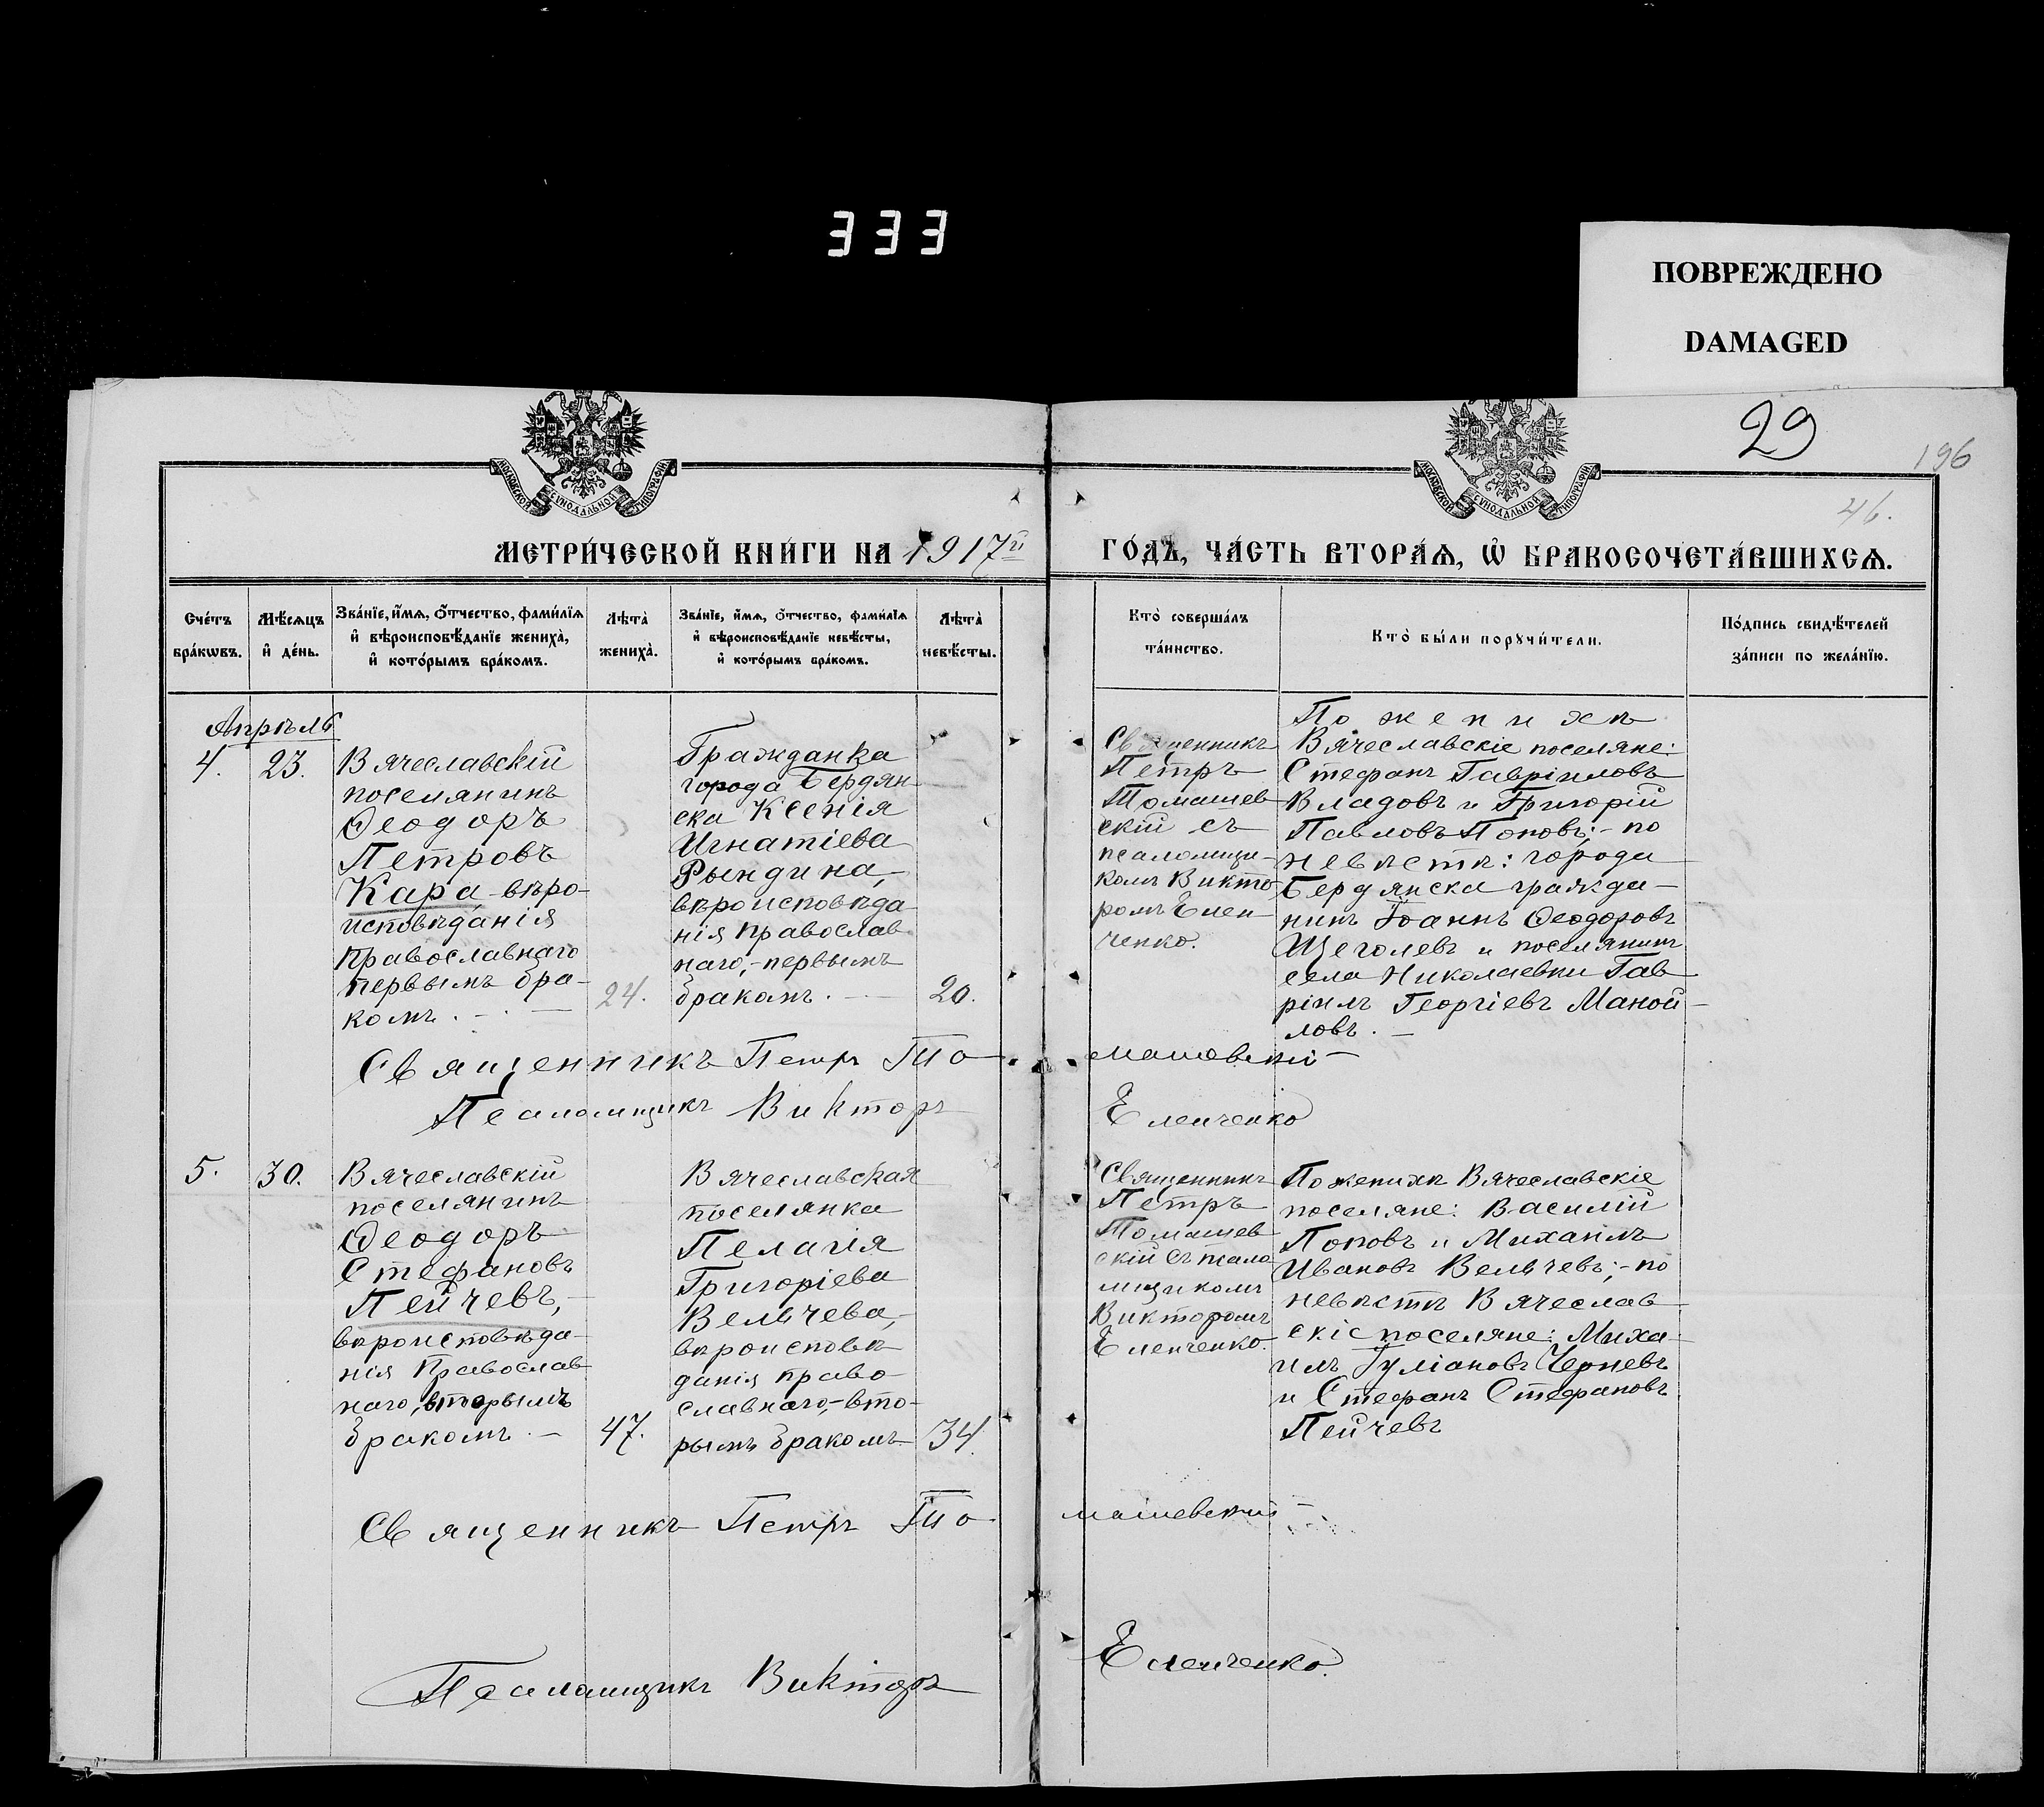 333
ПОВРЕЖДЕНО
DAMAGED
29
196
46.
МОСКОВСКОЙ СѴНОДАЛЬНОЙ ТИПОГРАФІИ
МОСКОВСКОЙ СѴНОДАЛЬНОЙ ТИПОГРАФІИ
МЕТРИ́ЧЕСКОЙ КНИ́ГИ НА 1917й
ГО́ДЪ, ЧА́СТЬ ВТОРА́Ѧ, Ѡ҆ БРАКОСОЧЕТА́ВШИХСѦ.
Сче́тъ
бра́кѡвъ.
Мѣ́сѧцъ
и҆ де́нь.
Зва́нїе, и҆́мѧ, ѻ҆́тчество, фами́лїѧ
и҆ вѣроисповѣ́данїе жениха̀,
и҆ кото́рымъ бра́комъ.
Лѣ́та̀
жениха̀.
Зва́нїе, и҆́мѧ, ѻ҆́тчество, фами́лїѧ
и҆ вѣроисповѣ́данїе невѣ́сты,
и҆ кото́рымъ бра́комъ.
Лѣ́та̀
невѣ́сты.
Кто̀ соверша́лъ
та́инство.
Кто̀ бы́ли порꙋчи́тели.
По́дпись свидѣ́телей
за́писи по жела́нїю.
Апрѣль
4.
23.
Вячеславскій
поселянинъ
Ѳеодоръ
Петровъ
Кара вѣро-
исповѣданія
Православнаго
первымъ бра-
комъ. -
24.
Гражданка
города Бердян
ска Ксенія
Игнатіева
Рындина,-
вѣроисповѣда
нія Православ
наго,-первымъ
бракомъ. -
20.
Священникъ
Петръ
Томашев
скій съ
псаломщи-
комъ Викто
ромъ Елен
ченко.
По женихѣ
Вячеславскіе поселяне:
Стефанъ Гавріиловъ
Владовъ и Григорій
Павловъ Поповъ;- по
невѣстѣ: города
Бердянска гражда-
нинъ Іоаннъ Ѳеодоровъ
Щеголевъ и поселянинъ
села Николаевки Гав
ріилъ Георгіевъ Маной-
ловъ. -
Священникъ Петръ То
машевскій
Псаломщикъ Викторъ
Еленченко
5.
30.
Вячеславскій
поселянинъ
Ѳеодоръ
Стефановъ
Пейчевъ,-
вѣроисповѣда-
нія Православ
наго, вторымъ
бракомъ. -
47.
Вячеславская
поселянка
Пелагія
Григоріева
Вельчева,-
вѣроисповѣ
данія право-
славнаго,-вто-
рымъ бракомъ
34.
Священникъ
Петръ
Томашев
скій съ псало
мщикомъ
Викторомъ
Еленченко.
По женихѣ Вячеславскіе
поселяне: Василій
Поповъ и Михаилъ
Ивановъ Вельчевъ;- по
невѣстѣ Вячеслав
скіе поселяне: Миха-
илъ Іуліановъ Черневъ
и Стефанъ Стефановъ
Пейчевъ
Священникъ Петръ То
машевскій
Псаломщикъ Викторъ
Еленченко.